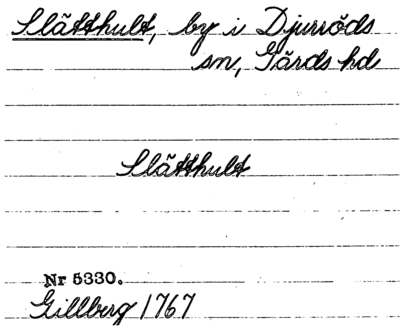 Slätthult, by i Djurröds
sn, Gärds hd
Slätthult
Nr 5330.
Gillberg 1767